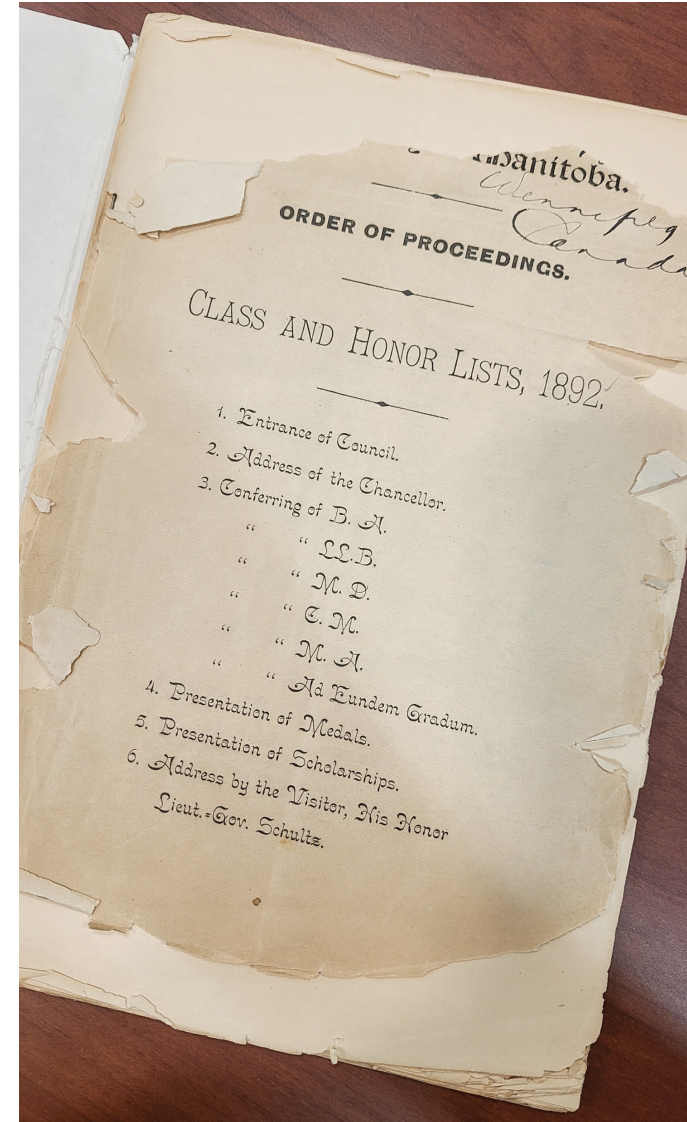 Manitoba.
Winnipeg
Canada
ORDER OF PROCEEDINGS.
CLASS AND HONOR LISTS, 1892.
1. Entrance of Council.
2. Address of the Chancellor.
3. Conferring of B. A.
“ “ LL.B.
“ “ M. D.
“ “ C. M.
“ “ M. A.
“ “ Ad Eundem Gradum.
4. Presentation of Medals.
5. Presentation of Scholarships.
6. Address by the Visitor, His Honor
Lieut.=Gov. Schultz.